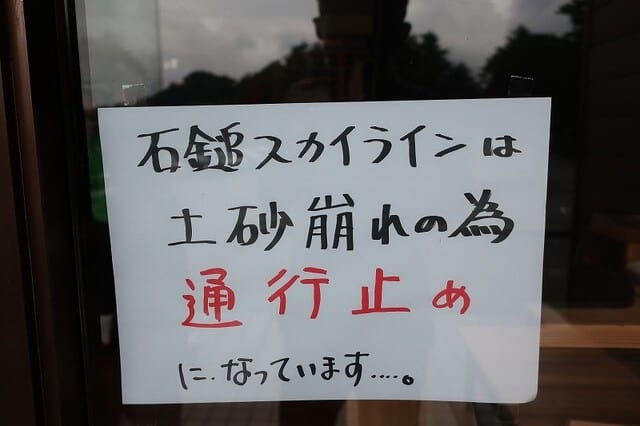 石鎚スカイラインは
土砂崩れの為
通行止め
に、なっています....。